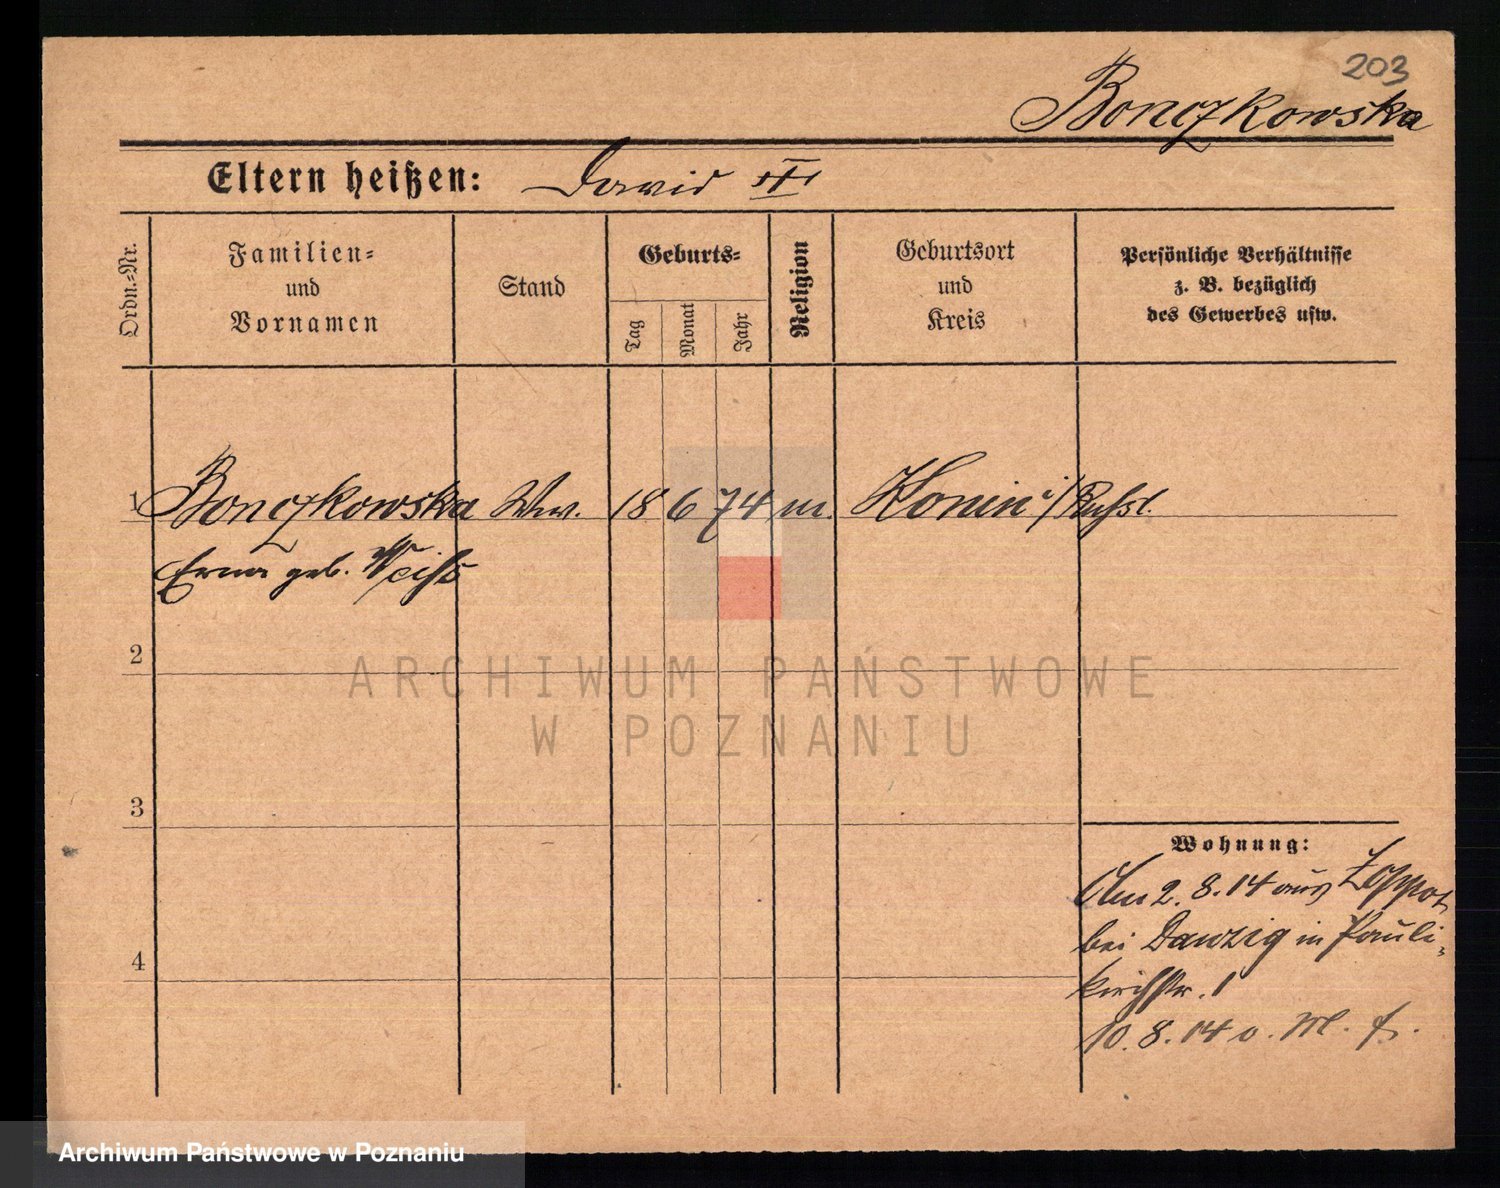 203
Bonczkowska
Eltern heißen: David III
Ordn.=Nr.
Familien=
und
Vornamen
Stand
Geburts=
Tag
Monat
Jahr
Religion
Geburtsort
und
Kreis
Persönliche Verhältnisse
z. B. bezüglich
des Gewerbes usw.
1 Bonczkowska Ww. 18 6 74 m. Konin i/Rußl.
Erna geb. Weiß
2
ARCHIWUM PAŃSTWOWE
W POZNANIU
3
Wohnung:
2. 8. 14 aus Zoppot
bei Danzig in Pauli=
kirchstr. 1
4
10. 8. 14 o. M. f.
Archiwum Państwowe w Poznaniu